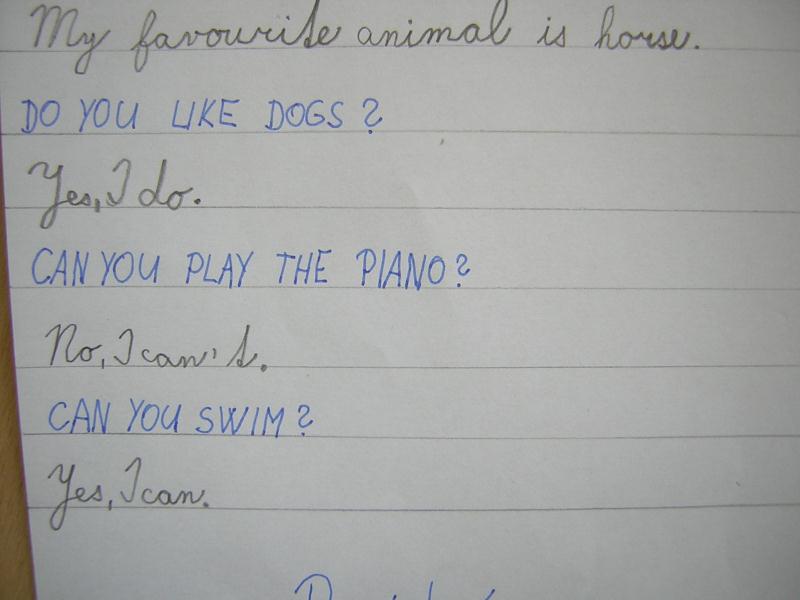 My favourite animal is horse.
DO YOU LIKE DOGS?
Yes, I do.
CAN YOU PLAY THE PIANO?
No, I can't.
CAN YOU SWIM?
Yes, I can.